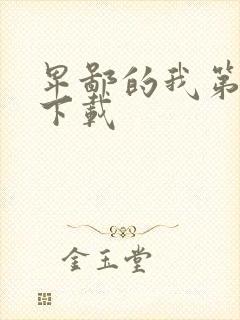 卑鄙的我第
下载
金玉堂